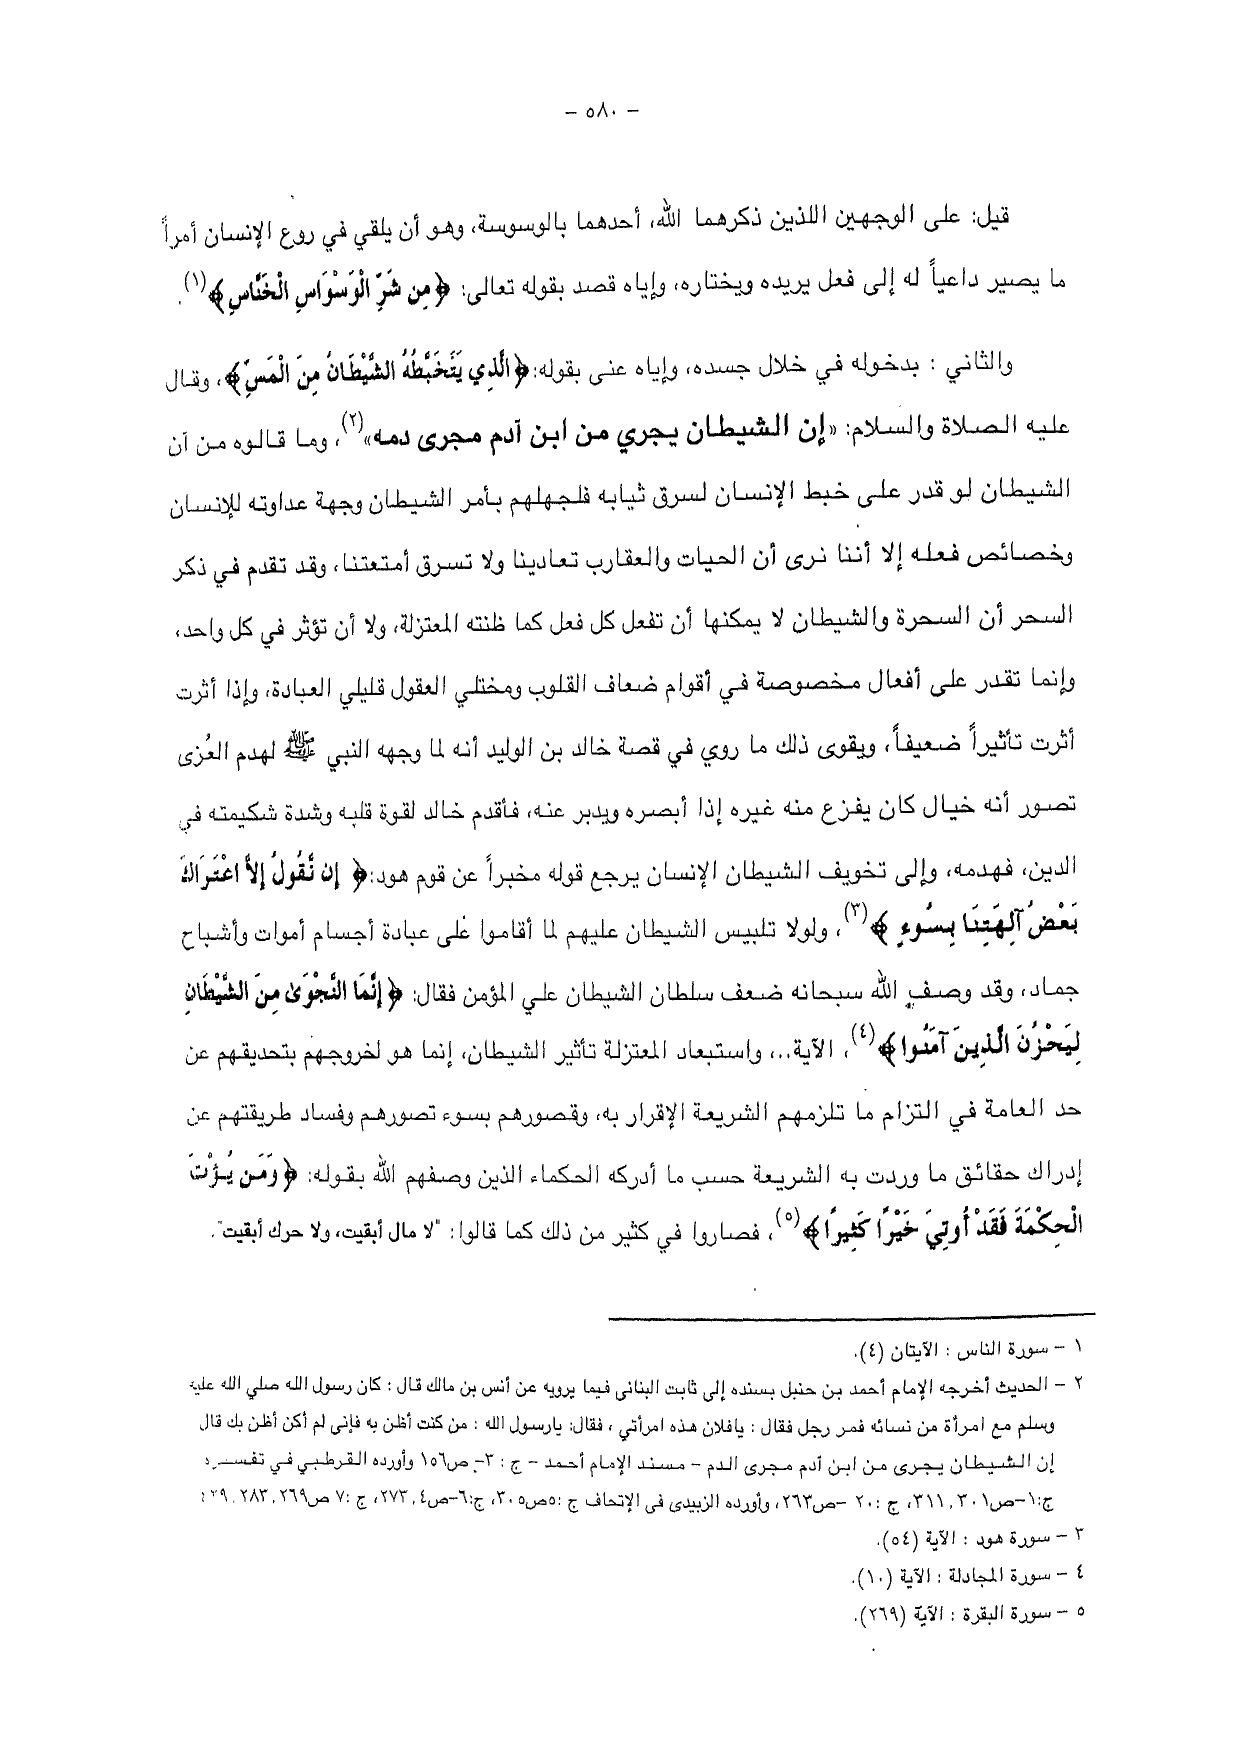 – ٥٨٠ –
قيل: على الوجهين اللذين ذكرهما الله، أحدهما بالوسوسة، وهو أن يلقي في روع الإنسان أمراً
ما يصير داعياً له إلى فعل يريده ويختاره، وإياه قصد بقوله تعالى: ﴿مِن شَرِّ الْوَسْوَاسِ الْخَنَّاسِ﴾(١).
والثاني : بدخوله في خلال جسده، وإياه عنى بقوله:﴿الَّذِي يَتَخَبَّطُهُ الشَّيْطَانُ مِنَ الْمَسِّ﴾، وقال
عليه الصلاة والسلام: «إن الشيطان يجري من ابن آدم مجرى دمه»(٢)، وما قالوه من أن
الشيطان لو قدر على خبط الإنسان لسرق ثيابه فلجهلهم بأمر الشيطان وجهة عداوته للإنسان
وخصائص فعله إلا أننا نرى أن الحيات والعقارب تعادينا ولا تسرق أمتعتنا، وقد تقدم في ذكر
السحر أن السحرة والشيطان لا يمكنها أن تفعل كل فعل كما ظنته المعتزلة، ولا أن تؤثر في كل واحد،
وإنما تقدر على أفعال مخصوصة في أقوام ضعاف القلوب ومختلي العقول قليلي العبادة، وإذا أثرت
أثرت تأثيراً ضعيفاً، ويقوى ذلك ما روي في قصة خالد بن الوليد أنه لما وجهه النبي ﷺ لهدم العُزى
تصور أنه خيال كان يفزع منه غيره إذا أبصره ويدبر عنه، فأقدم خالد لقوة قلبه وشدة شكيمته في
الدين، فهدمه، وإلى تخويف الشيطان الإنسان يرجع قوله مخبراً عن قوم هود:﴿ إِن نَّقُولُ إِلاَّ اعْتَرَاكَ
بَعْضُ آلِهَتِنَا بِسُوءٍ ﴾(٣)، ولولا تلبيس الشيطان عليهم لما أقاموا على عبادة أجسام أموات وأشباح
جماد، وقد وصف الله سبحانه ضعف سلطان الشيطان علي المؤمن فقال: ﴿ إِنَّمَا النَّجْوَىٰ مِنَ الشَّيْطَانِ
لِيَحْزُنَ الَّذِينَ آمَنُوا ﴾(٤)، الآية..، واستبعاد المعتزلة تأثير الشيطان، إنما هو لخروجهم بتحديقهم عن
حد العامة في التزام ما تلزمهم الشريعة الإقرار به، وقصورهم بسوء تصورهم وفساد طريقتهم عن
إدراك حقائق ما وردت به الشريعة حسب ما أدركه الحكماء الذين وصفهم الله بقوله: ﴿ وَمَن يُؤْتَ
الْحِكْمَةَ فَقَدْ أُوتِيَ خَيْرًا كَثِيرًا ﴾(٥)، فصاروا في كثير من ذلك كما قالوا: "لا مال أبقيت، ولا حرك أبقيت".
١ – سورة الناس : الآيتان (٤).
٢ – الحديث أخرجه الإمام أحمد بن حنبل بسنده إلى ثابت البناني فيما يرويه عن أنس بن مالك قال : كان رسول الله صلي الله عليه
وسلم مع امرأة من نسائه فمر رجل فقال : يافلان هذه امرأتي ، فقال: يارسول الله : من كنت أظن به فإنى لم أكن أظن بك قال
إن الشيطان يجرى من ابن آدم مجرى الدم – مسند الإمام أحمد – ج : ٣-ص١٥٦ وأورده القرطبي في تفسيره
ج:١-ص٣٠١، ٣١١، ج : ٢٠ –ص٢٦٣، وأورده الزبيدى فى الإتحاف ج :٥ص٣٠٥، ج:٦-ص٤، ٢٧٣، ج :٧ ص٢٦٩، ٢٨٣،
٣ – سورة هود : الآية (٥٤).
٤ – سورة المجادلة : الآية (١٠).
٥ – سورة البقرة : الآية (٢٦٩).